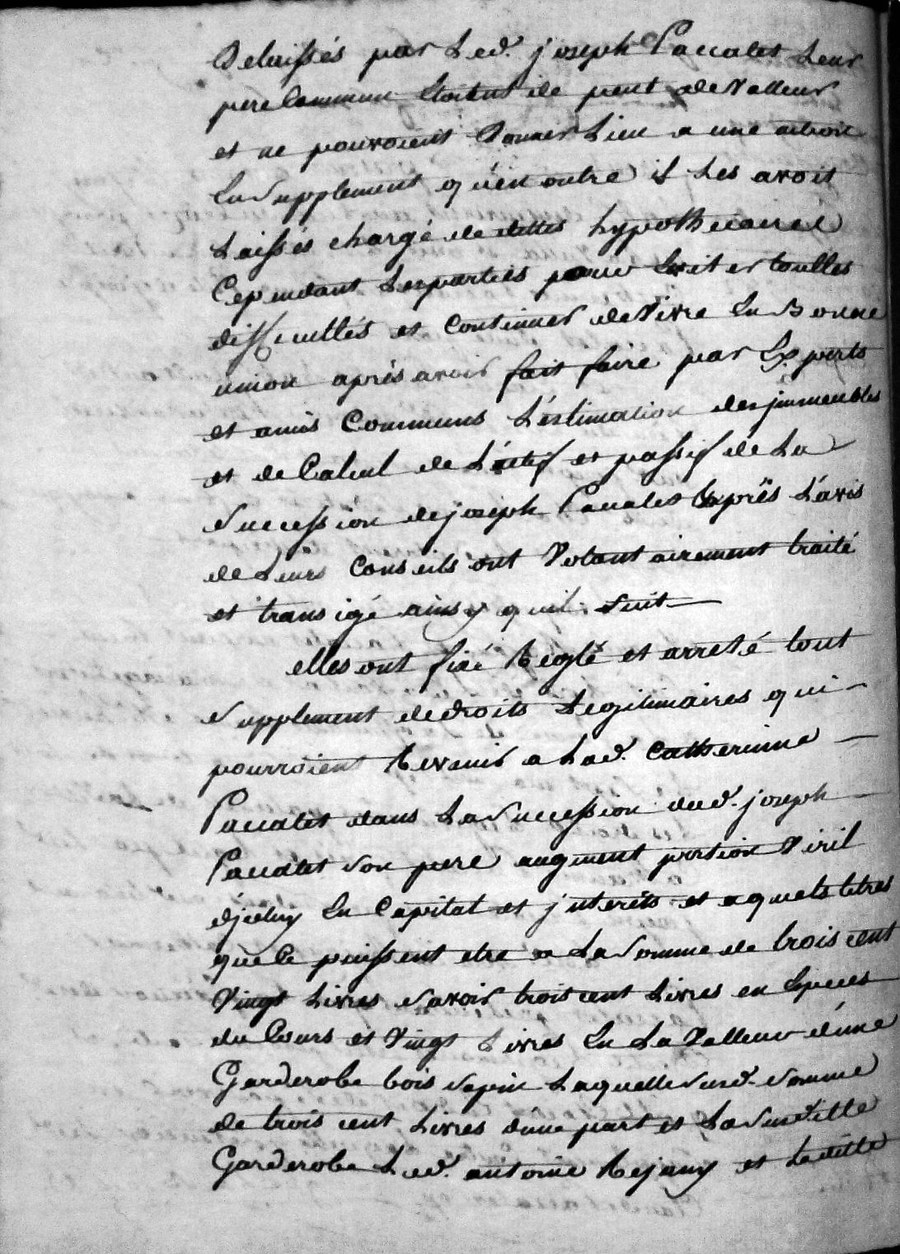 Delaissés par Led. joseph Paccalet Leur
pere Commun Etoient de peut de Valleur
et ne pouvoient Donner Lieu a une action
En Supplement qu'en outre il Les avoit
Laissés chargé de dettes hypothecaires
Cependant Les parties pour Eviter touttes
difficultés et Continuer de Vivre En Bonne
union aprés avoir fait faire par Experts
et amis Communs L'estimation des jmmeubles
et de Calcul de L'actif et passif de La
Succession de joseph Paccalet Aprés L'avis
de Leurs Conseils ont Volontairement traité
et transigé ainsy quil Suit
elles ont fixé Reglé et arreté tout
Supplement de droits Legitimaires qui
pourroient Revenir a Lad. Catherinne
Paccalet dans La Succession dud. joseph
Paccalet Son pere augment portion Viril
d'jceluy En Capital et jnterets et a quels titres
que Ce puissent etre a La Somme de trois cent
Vingt Livres Savoir trois cent Livres en Especes
du Cours et Vingt Livres En La Valleur d'une
Garderobe bois Sapin Laquelle Susd. Somme
de trois cent Livres dune part et La Susditte
Garderobe Led. antoine Rejany et Laditte